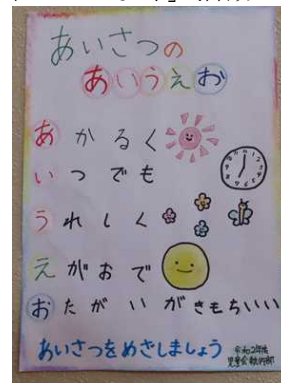 あいさつの
あいうえお
あかるく
いつでも
うれしく
えがおで
おたがいがきもちいい
あいさつをめざしましょう
令和2年度
児童会執行部